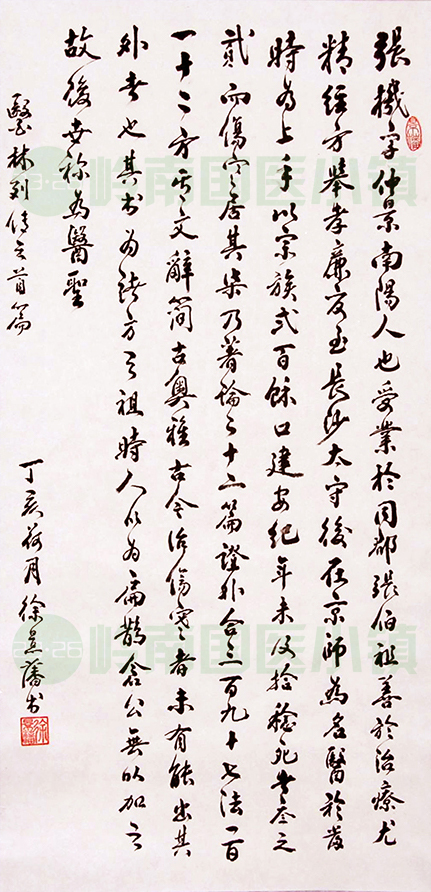 張機字仲景南陽人也受業於同郡張伯祖善於治療尤
精經方舉孝廉官至長沙太守後在京師為名醫於當
時為上手以宗族弐百餘口建安紀年未及拾稔死者叁之
貳而傷寒居其柒乃著論二十二篇證外合三百九十七法一百
一十二方其文辭簡古奧雅古今治傷寒者未有能出其
外者也其書為諸方之祖時人以為扁鵲倉公無以加之
故後世称為醫聖
醫林列傳之首篇
丁亥荷月徐景藩书
岭南国医小镇
岭南国医小镇